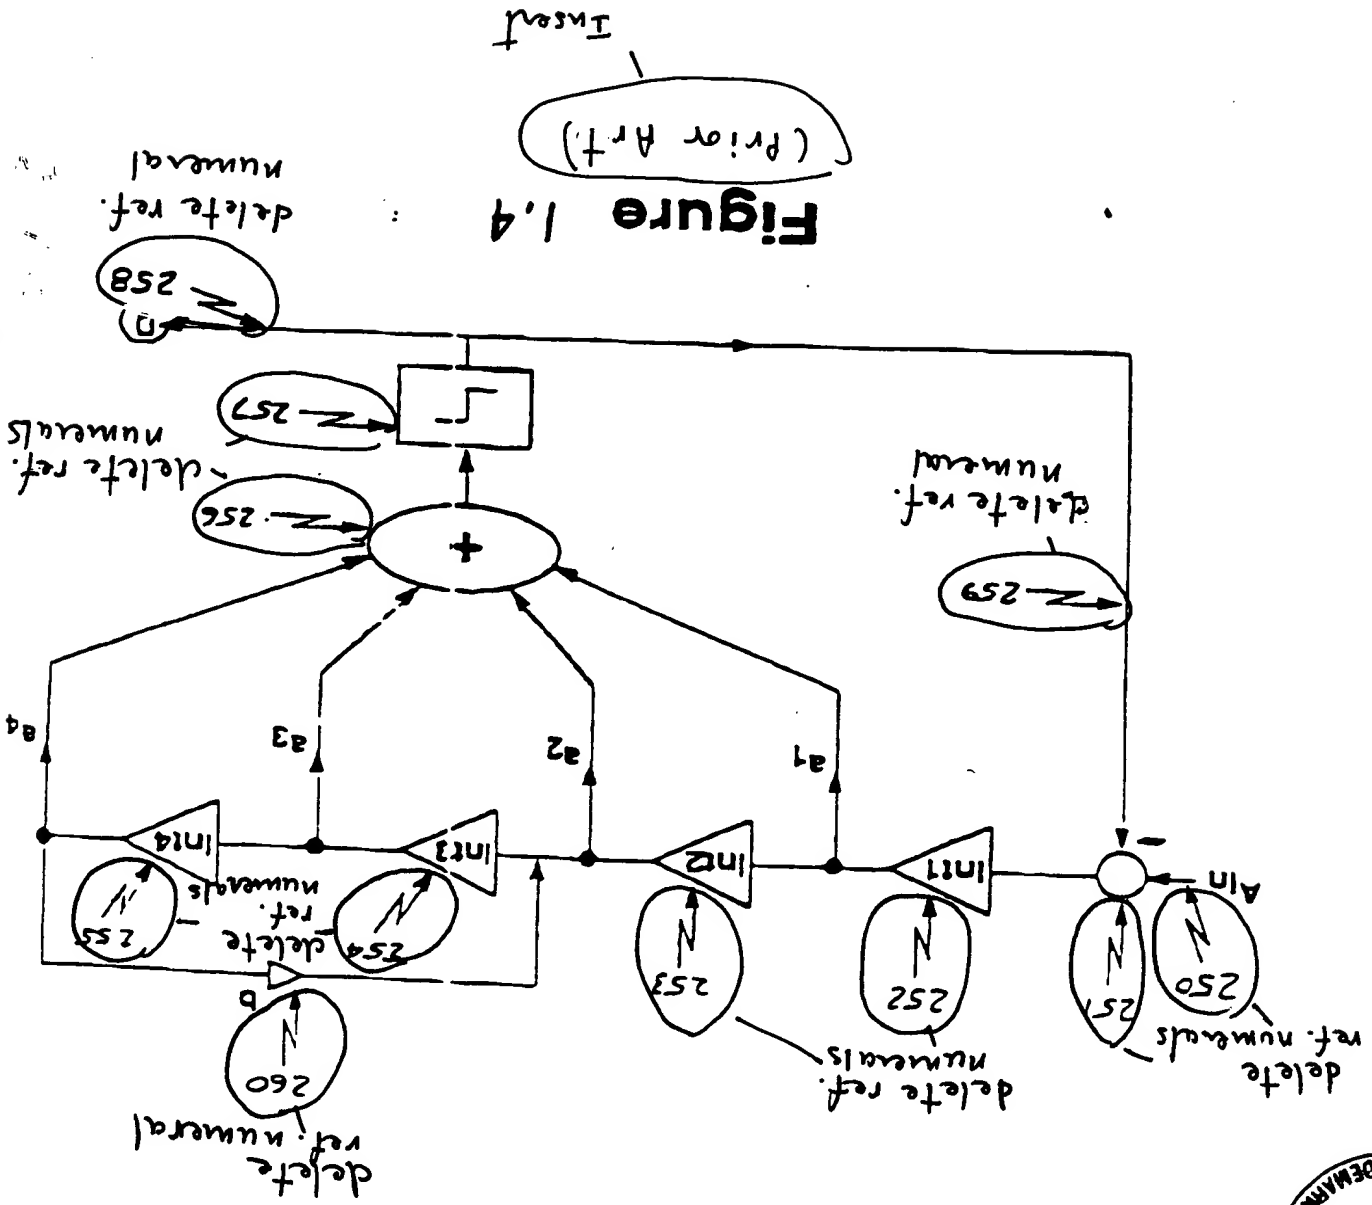 delete
ref. numeral
260
b
delete ref.
numerals
delete
ref. numerals
250
251
252
253
254
255
delete
ref.
numerals
AIn
Int1
Int2
Int3
Int4
-
a1
a2
a3
a4
259
delete ref.
numeral
+
256
257
delete ref.
numerals
258
delete ref.
numeral
Figure 1.4
(Prior Art)
Insert